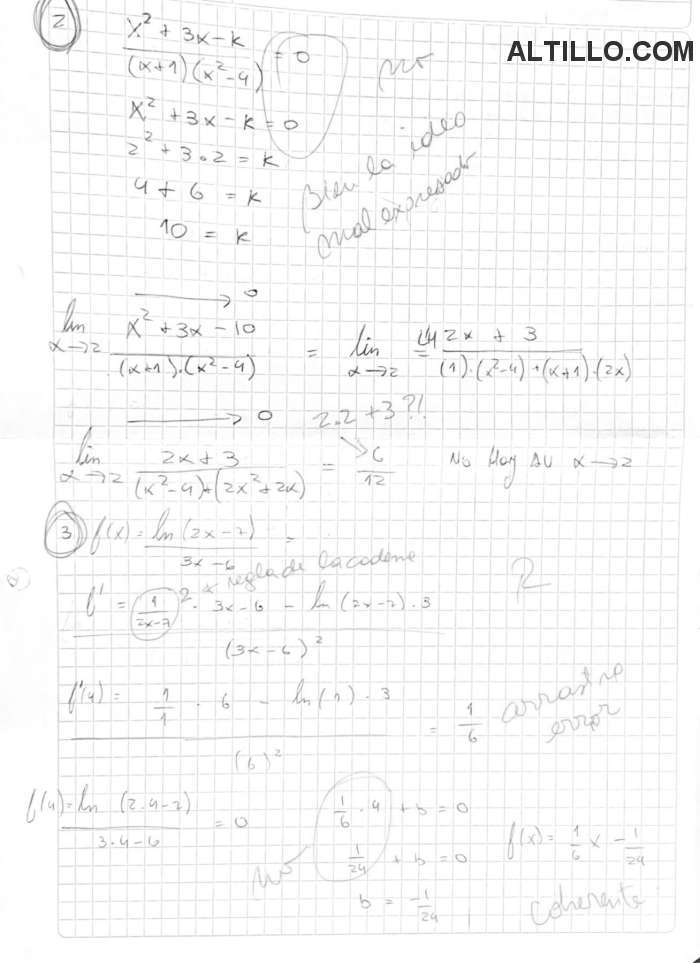 ALTILLO.COM
2
x² + 3x - k / (x+1)(x²-4) = 0
x² + 3x - k = 0
2² + 3.2 = k
4 + 6 = k
10 = k
Bien la idea
mal expresado
→ 0
lim x→2 x² + 3x - 10 / (x+1).(x²-4) = lim x→2 L'H = 2x + 3 / (1).(x²-4)+(x+1).(2x)
→ 0 2.2+3?!
lim x→2 2x+3 / (x²-4)+(2x²+2x) = 6/12 No Hay AV x→2
3 f(x) = ln(2x-7) / 3x-6 =
R
* regla de la cadena
f' = 1/2x-7 2* . 3x-6 - ln(2x-7).3 / (3x-6)²
f'(4) = 1/1 . 6 - ln(1).3 / (6)² = 1/6
arrastre
error
f(4) = ln (2.4-7) / 3.4-6 = 0
1/6 . 4 + b = 0
1/24 + b = 0
b = -1/24
f(x) = 1/6 x - 1/24
coherente